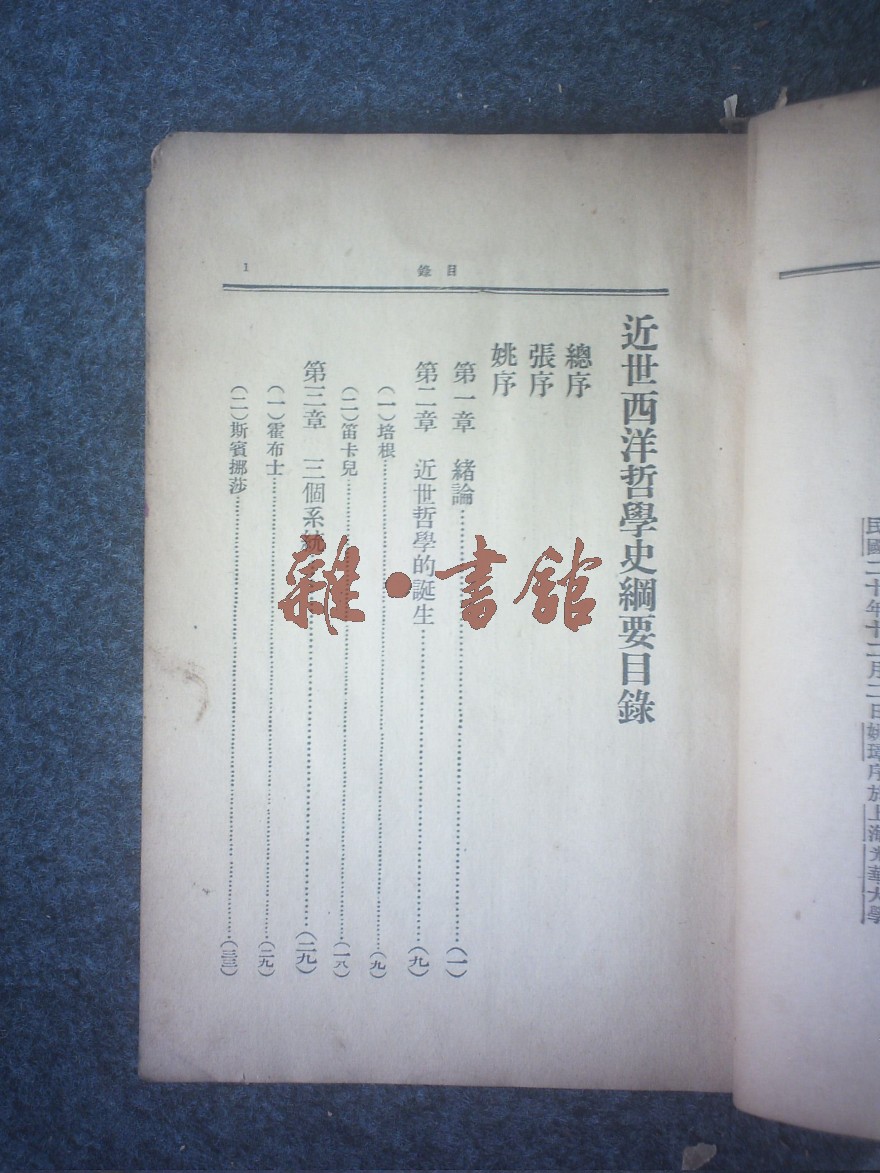 民國二十年十二月二日姚璋序於上海光華大學
目錄
1
近世西洋哲學史綱要目錄
總序
張序
姚序
第一章 緒論……(一)
第二章 近世哲學的誕生……(九)
(一)培根……(九)
(二)笛卡兒……(一八)
第三章 三個系統……(二九)
(一)霍布士……(二九)
(二)斯賓挪莎……(三三)
雜·書館